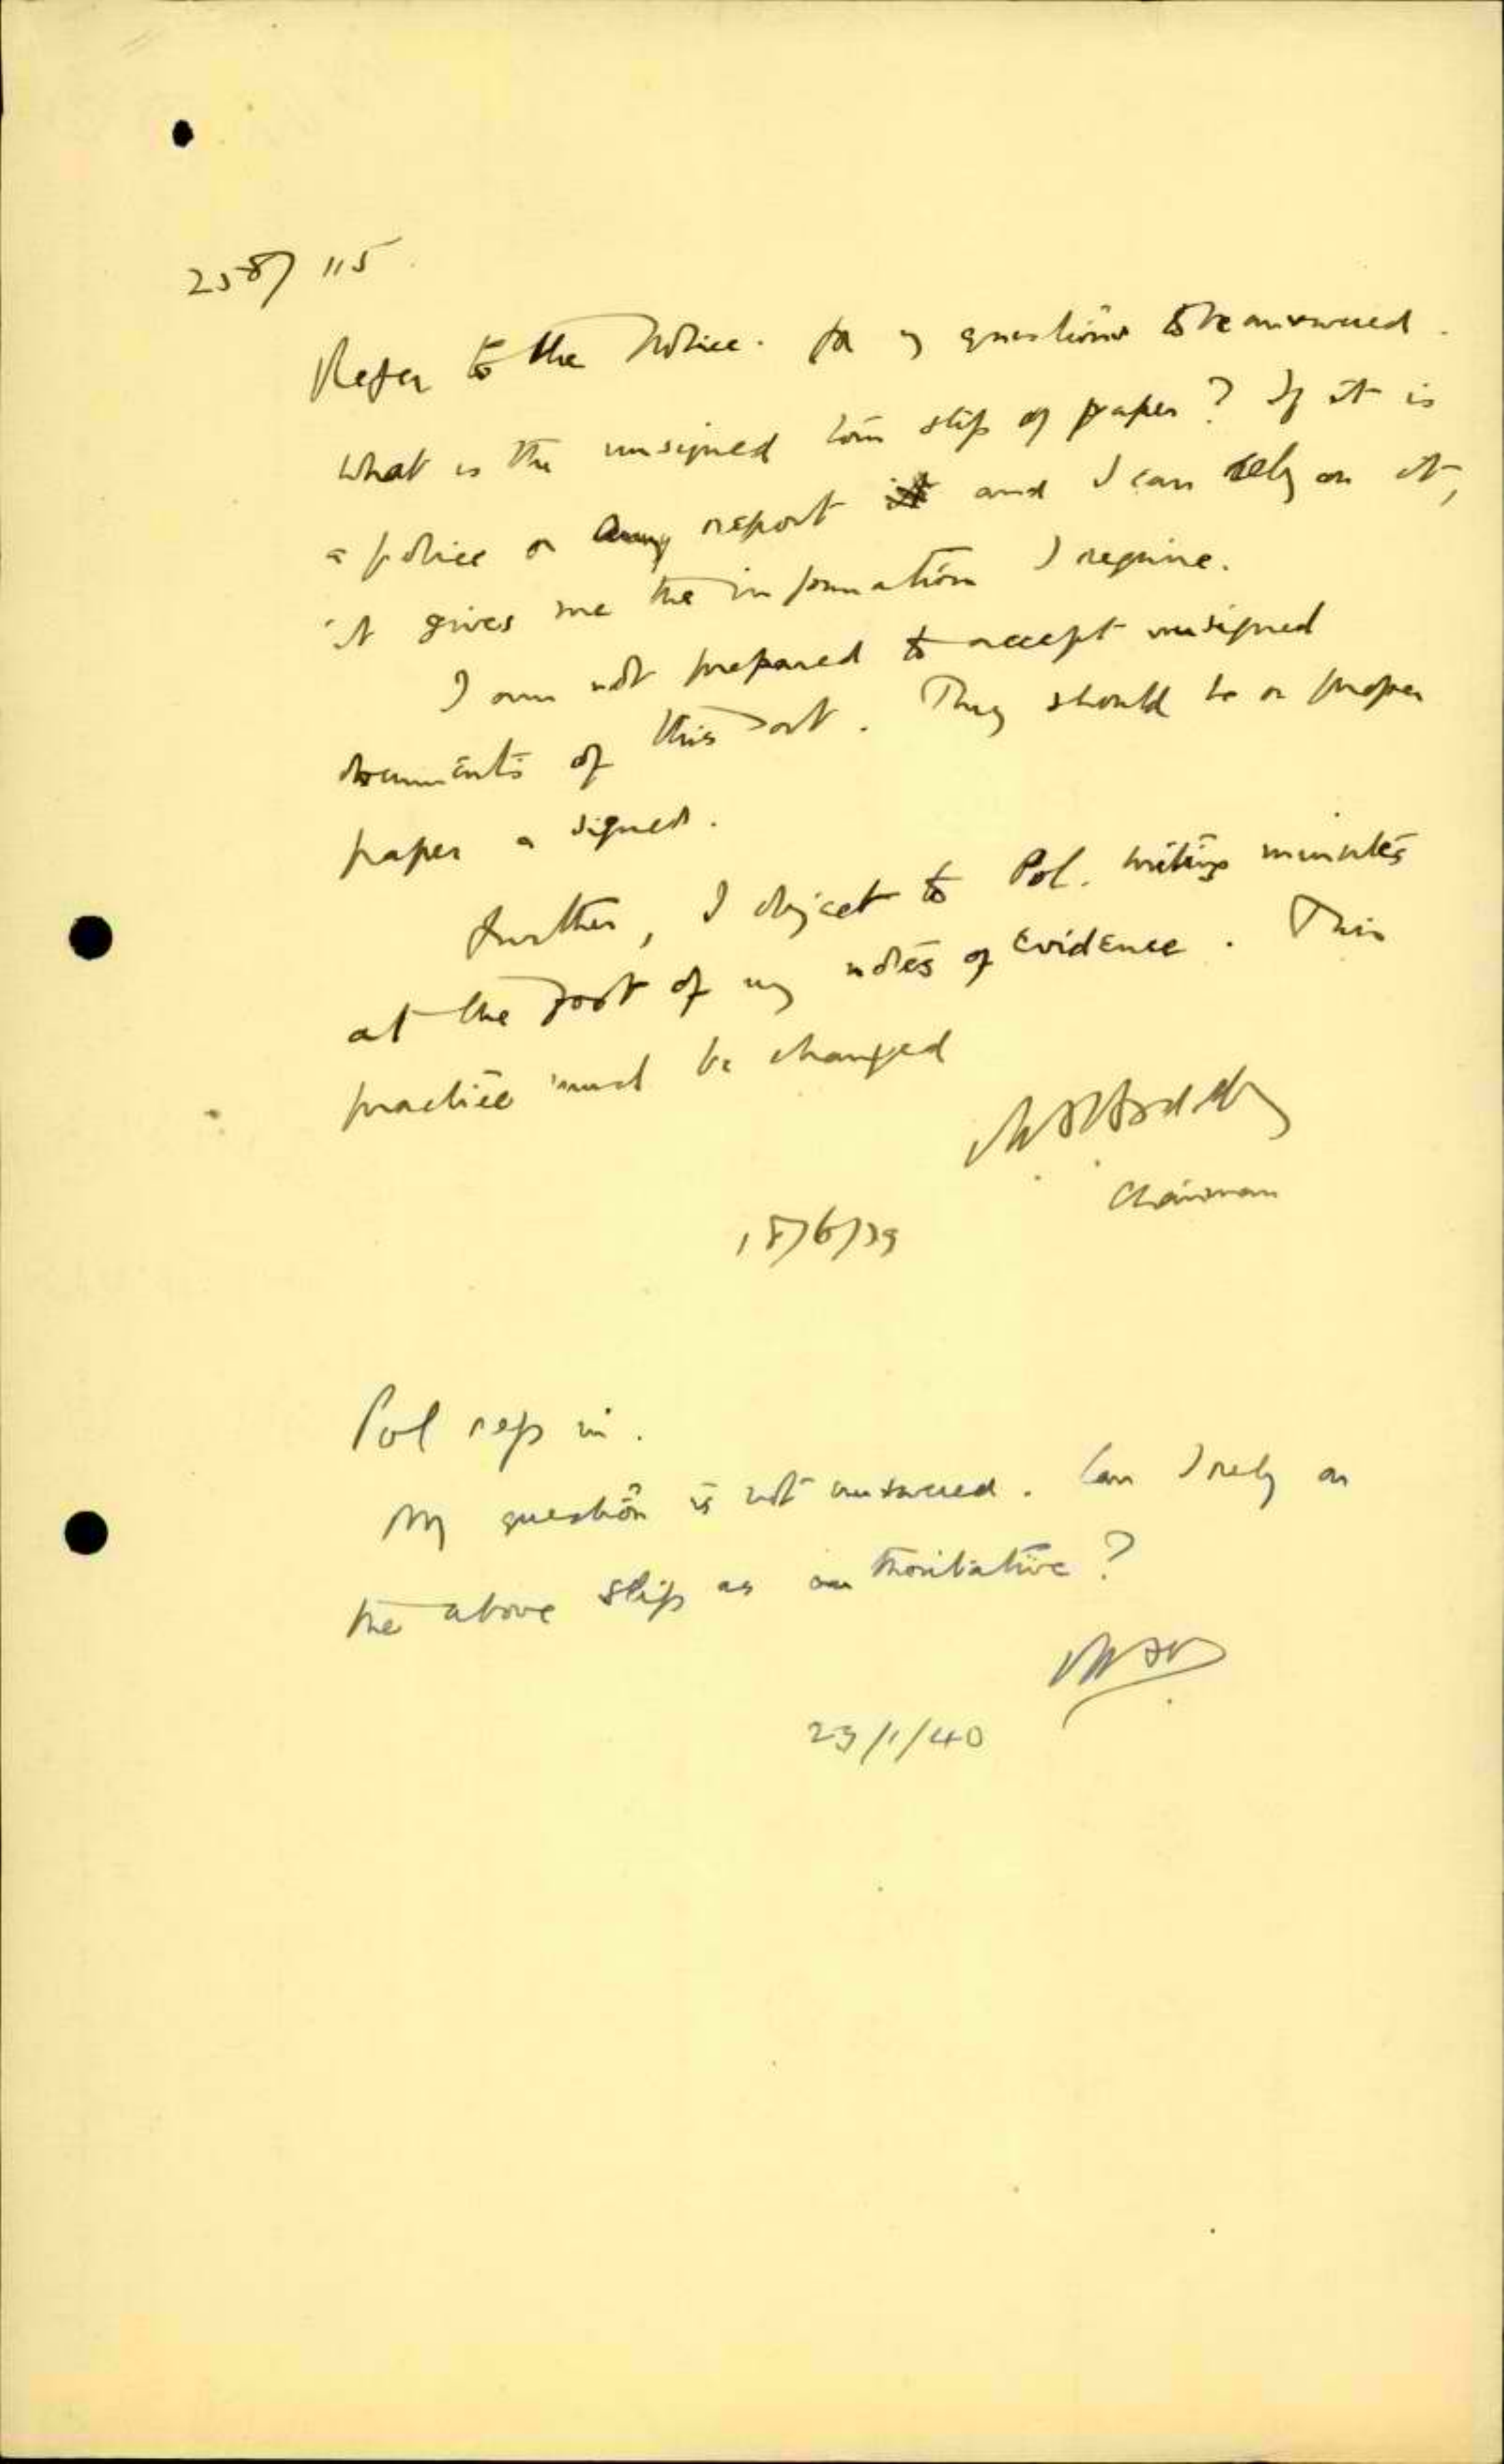 258/115
Refer to the Police. for my questions to be answered.
What is the unsigned torn slip of paper? If it is
a police or Army report and I can rely on it,
it gives me the information I require.
I am not prepared to accept unsigned
documents of this sort. They should be on proper
paper & signed.
Further, I object to Pol. writing minutes
at the foot of my notes of Evidence. This
practice must be changed
Chairman
18/6/39
Pol rep in.
My question is not answered. Can I rely on
the above slip as authoritative?
23/1/40